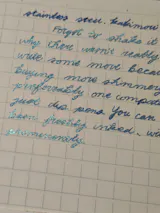 stainless steel.
Forgot to shake it
why there wasn't really
write some more because
buying more shimmer
preferably one
just dip pens. You can
been freshly inked. w
shimmering.